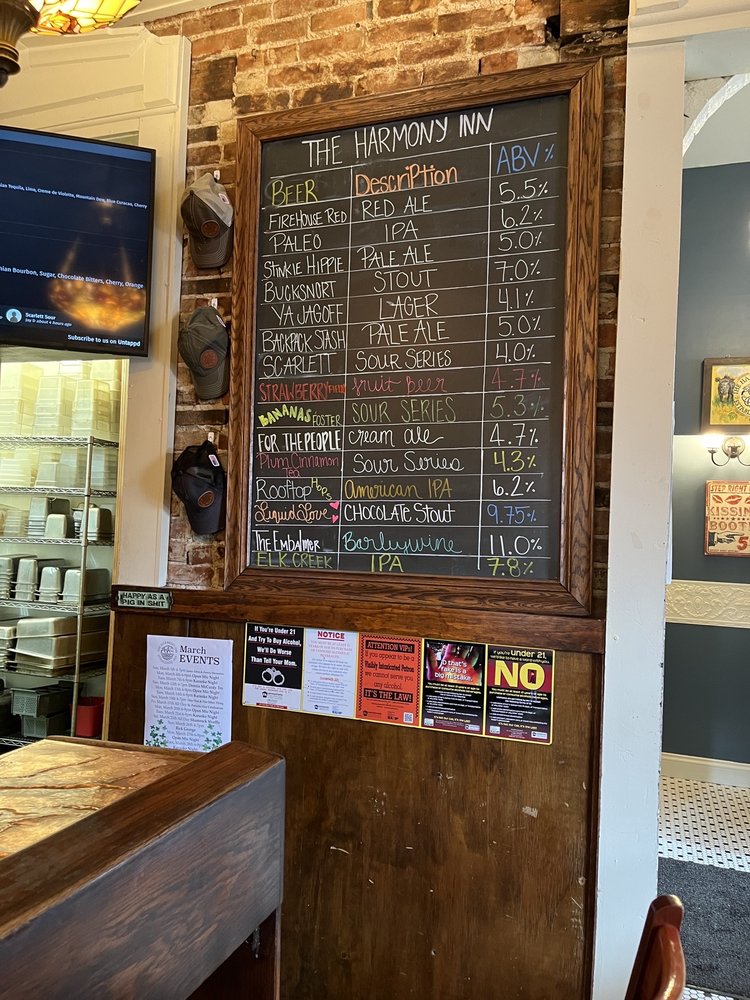 THE HARMONY INN
BEER DESCRIPTION ABV%
FIREHOUSE RED RED ALE 5.5%
PALEO IPA 6.2%
STINKIE HIPPIE PALE ALE 5.0%
BUCKSNORT STOUT 7.0%
YA JAGOFF LAGER 4.1%
BACKPACK STASH PALE ALE 5.0%
SCARLETT SOUR SERIES 4.0%
STRAWBERRY fruit beer 4.7%
BANANAS FOSTER SOUR SERIES 5.3%
FOR THE PEOPLE cream ale 4.7%
Plum Cinnamon Tea Sour Series 4.3%
Rooftop Hops American IPA 6.2%
Liquid Love CHOCOLATE Stout 9.75%
The Embalmer Barleywine 11.0%
ELK CREEK IPA 7.8%
Tequila, Lime, Creme de Violette, Mountain Dew, Blue Curacao, Cherry
Bourbon, Sugar, Chocolate Bitters, Cherry, Orange
Scarlett Sour
about 4 hours ago
Subscribe to us on Untappd
HAPPY AS A
PIG IN SHIT
March
EVENTS
If You're Under 21
And Try To Buy Alcohol,
We'll Do Worse
Than Tell Your Mom.
NOTICE
ATTENTION VIPs!
If you appear to be a
Visibly Intoxicated Patron
we cannot serve you
any alcohol.
IT'S THE LAW!
that's
fake is a
big mistake.
If you're under 21,
NO
STEP RIGHT
KISSING
BOOTH
5